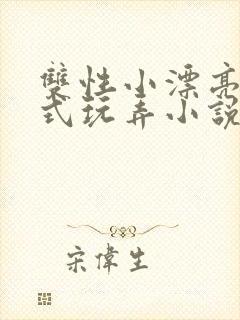 雙性小漂亮
式玩弄小說
宋偉生